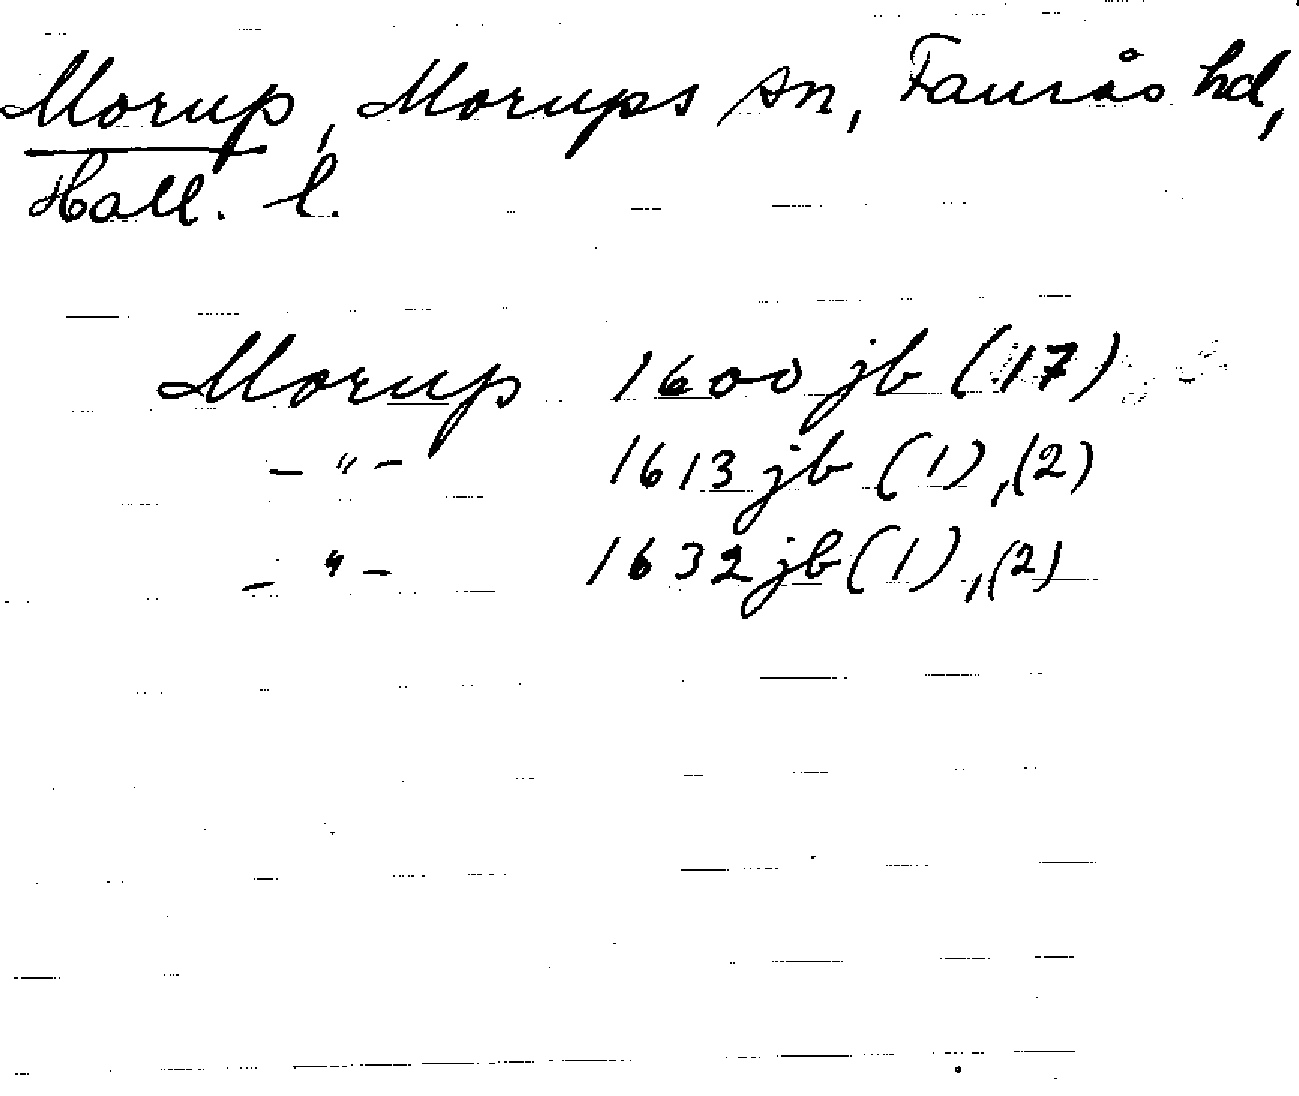 Morup, Morups sn, Faurås hd,
Hall. l.
Morup 1600 jb (17)
– " – 1613 jb (1), (2)
– " – 1632 jb (1), (2)